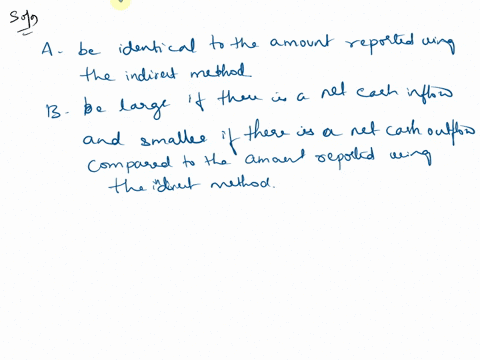 Soln
A - be identical to the amount reported using
the indirect method.
B - be large if there is a net cash inflow
and smaller if there is a net cash outflow
compared to the amount reported using
the idirect method.